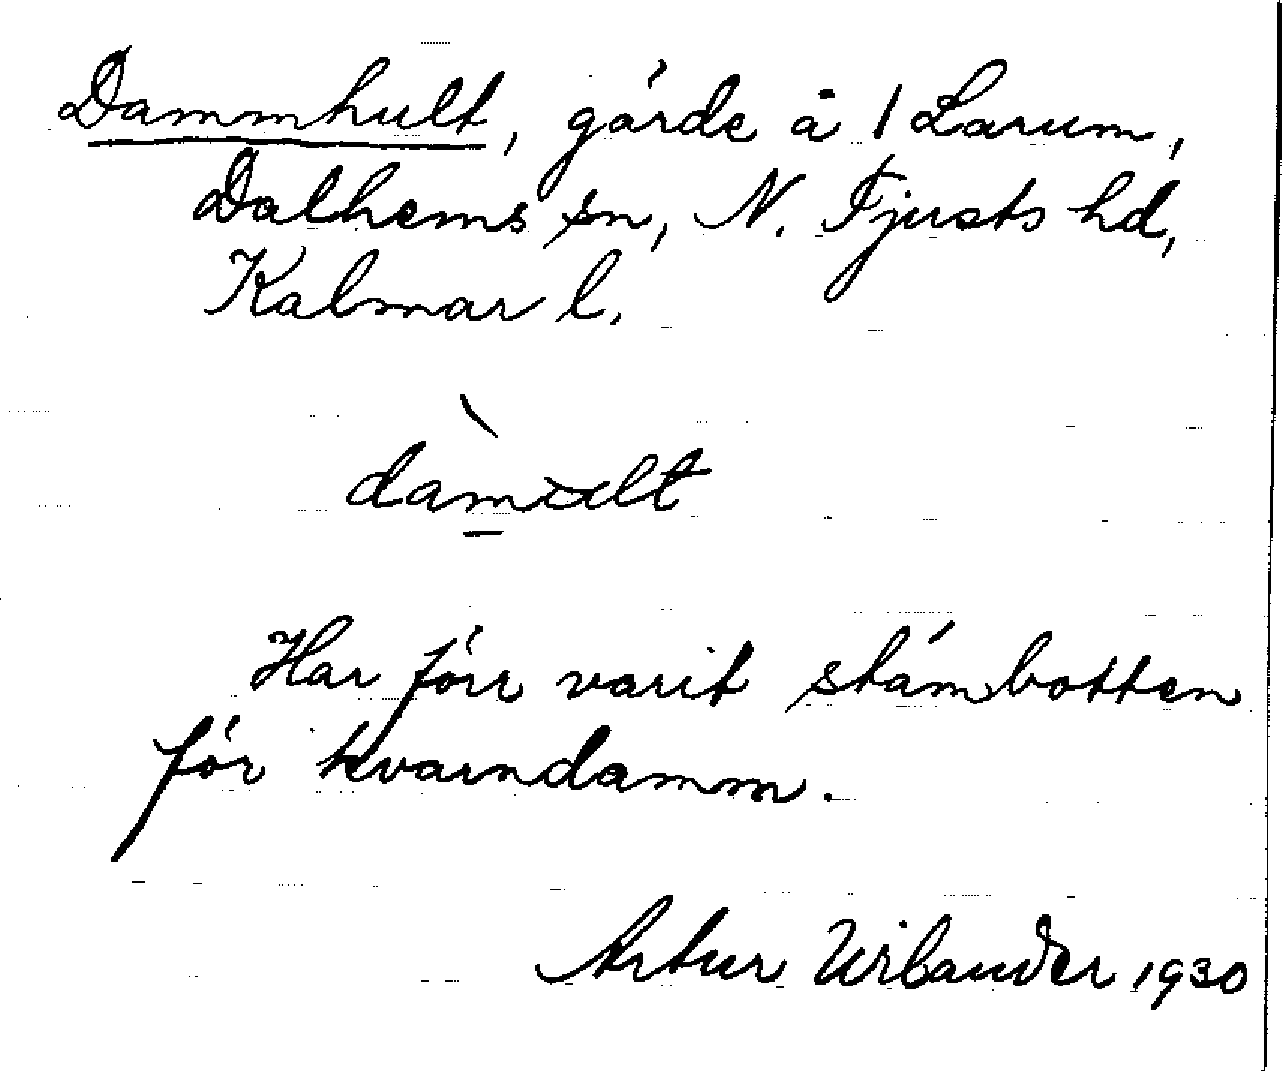 Dammhult, gärde å 1 Larum,
Dalhems sn, N. Tjusts hd,
Kalmar l.
Har förr varit stambotten
för kvarndamm.
Artur Wilander 1930